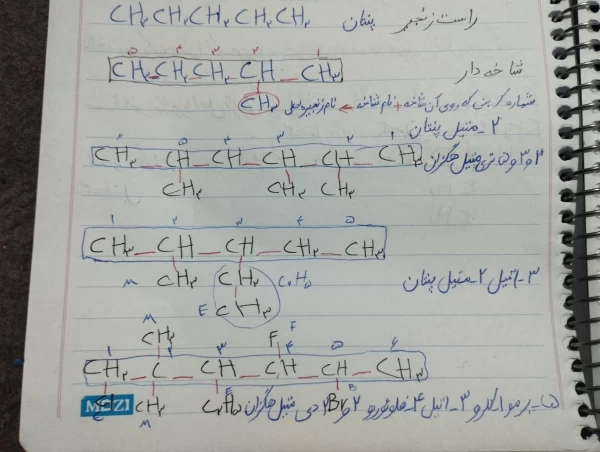 CH₃CH₂CH₂CH₂CH₃ راست زنجیر پنتان
۵ ۴ ۳ ۲ ۱
CH₃ CH₂ CH₂ CH _ CH₃ شاخه دار
CH₃ شماره کربنی که روی آن شاخه + نام شاخه ← نام زنجیر اصلی
۲ _ متیل پنتان
۶ ۵ ۴ ۳ ۲ ۱
CH₃ _ CH _ CH₂ _ CH _ CH _ CH₃ ۲ و ۳ و ۵ تری متیل هگزان
CH₃ CH₃ CH₃
۱ ۲ ۳ ۴ ۵
CH₃ _ CH _ CH _ CH₂ _ CH₃
CH₃ CH₂ C₂H₅ ۳ _ اتیل ۲ _ متیل پنتان
M E CH₃
M
CH₃ F F
۱ ۲ ۳ ۴ ۵ ۶
CH₂ _ C _ CH _ CH _ CH _ CH₃
Cl CH₃ C₂H₅ E Br B
M
۵ _ برمو ۱ کلرو ۳ _ اتیل ۴ _ فلوئورو ۲ و ۲ دی متیل هگزان
MEIZI